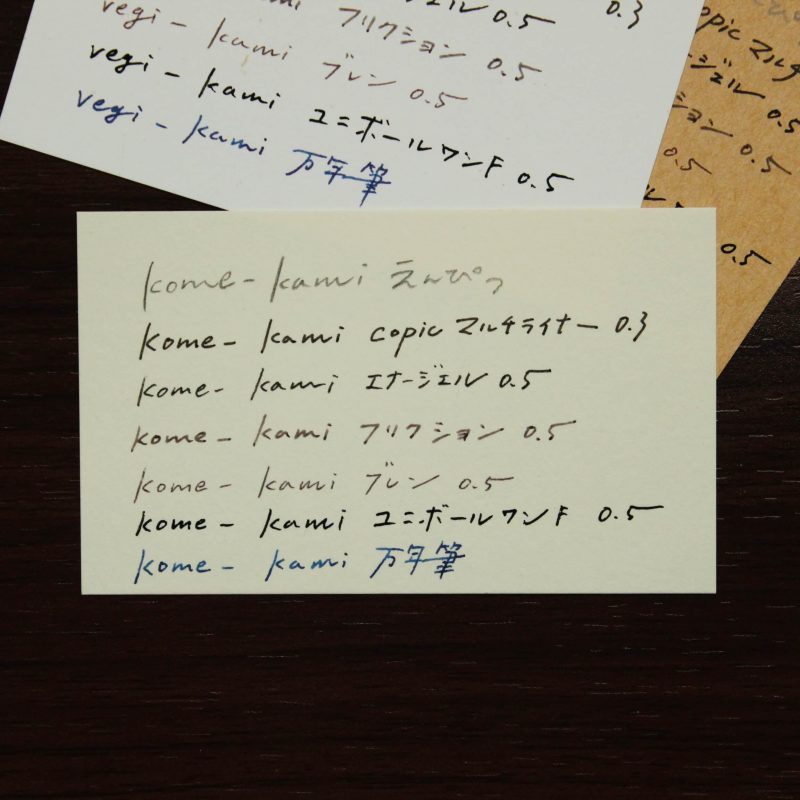 kami フリクション 0.5
0.3
vegi - kami ブレン 0.5
vegi - kami ユニボールワンF 0.5
vegi - kami 万年筆
copic マルチ
ジェル 0.5
ション 0.5
0.5
0.5
kome - kami えんぴつ
kome - kami copic マルチライナー 0.3
kome - kami エナージェル 0.5
kome - kami フリクション 0.5
kome - kami ブレン 0.5
kome - kami ユニボールワンF 0.5
kome - kami 万年筆